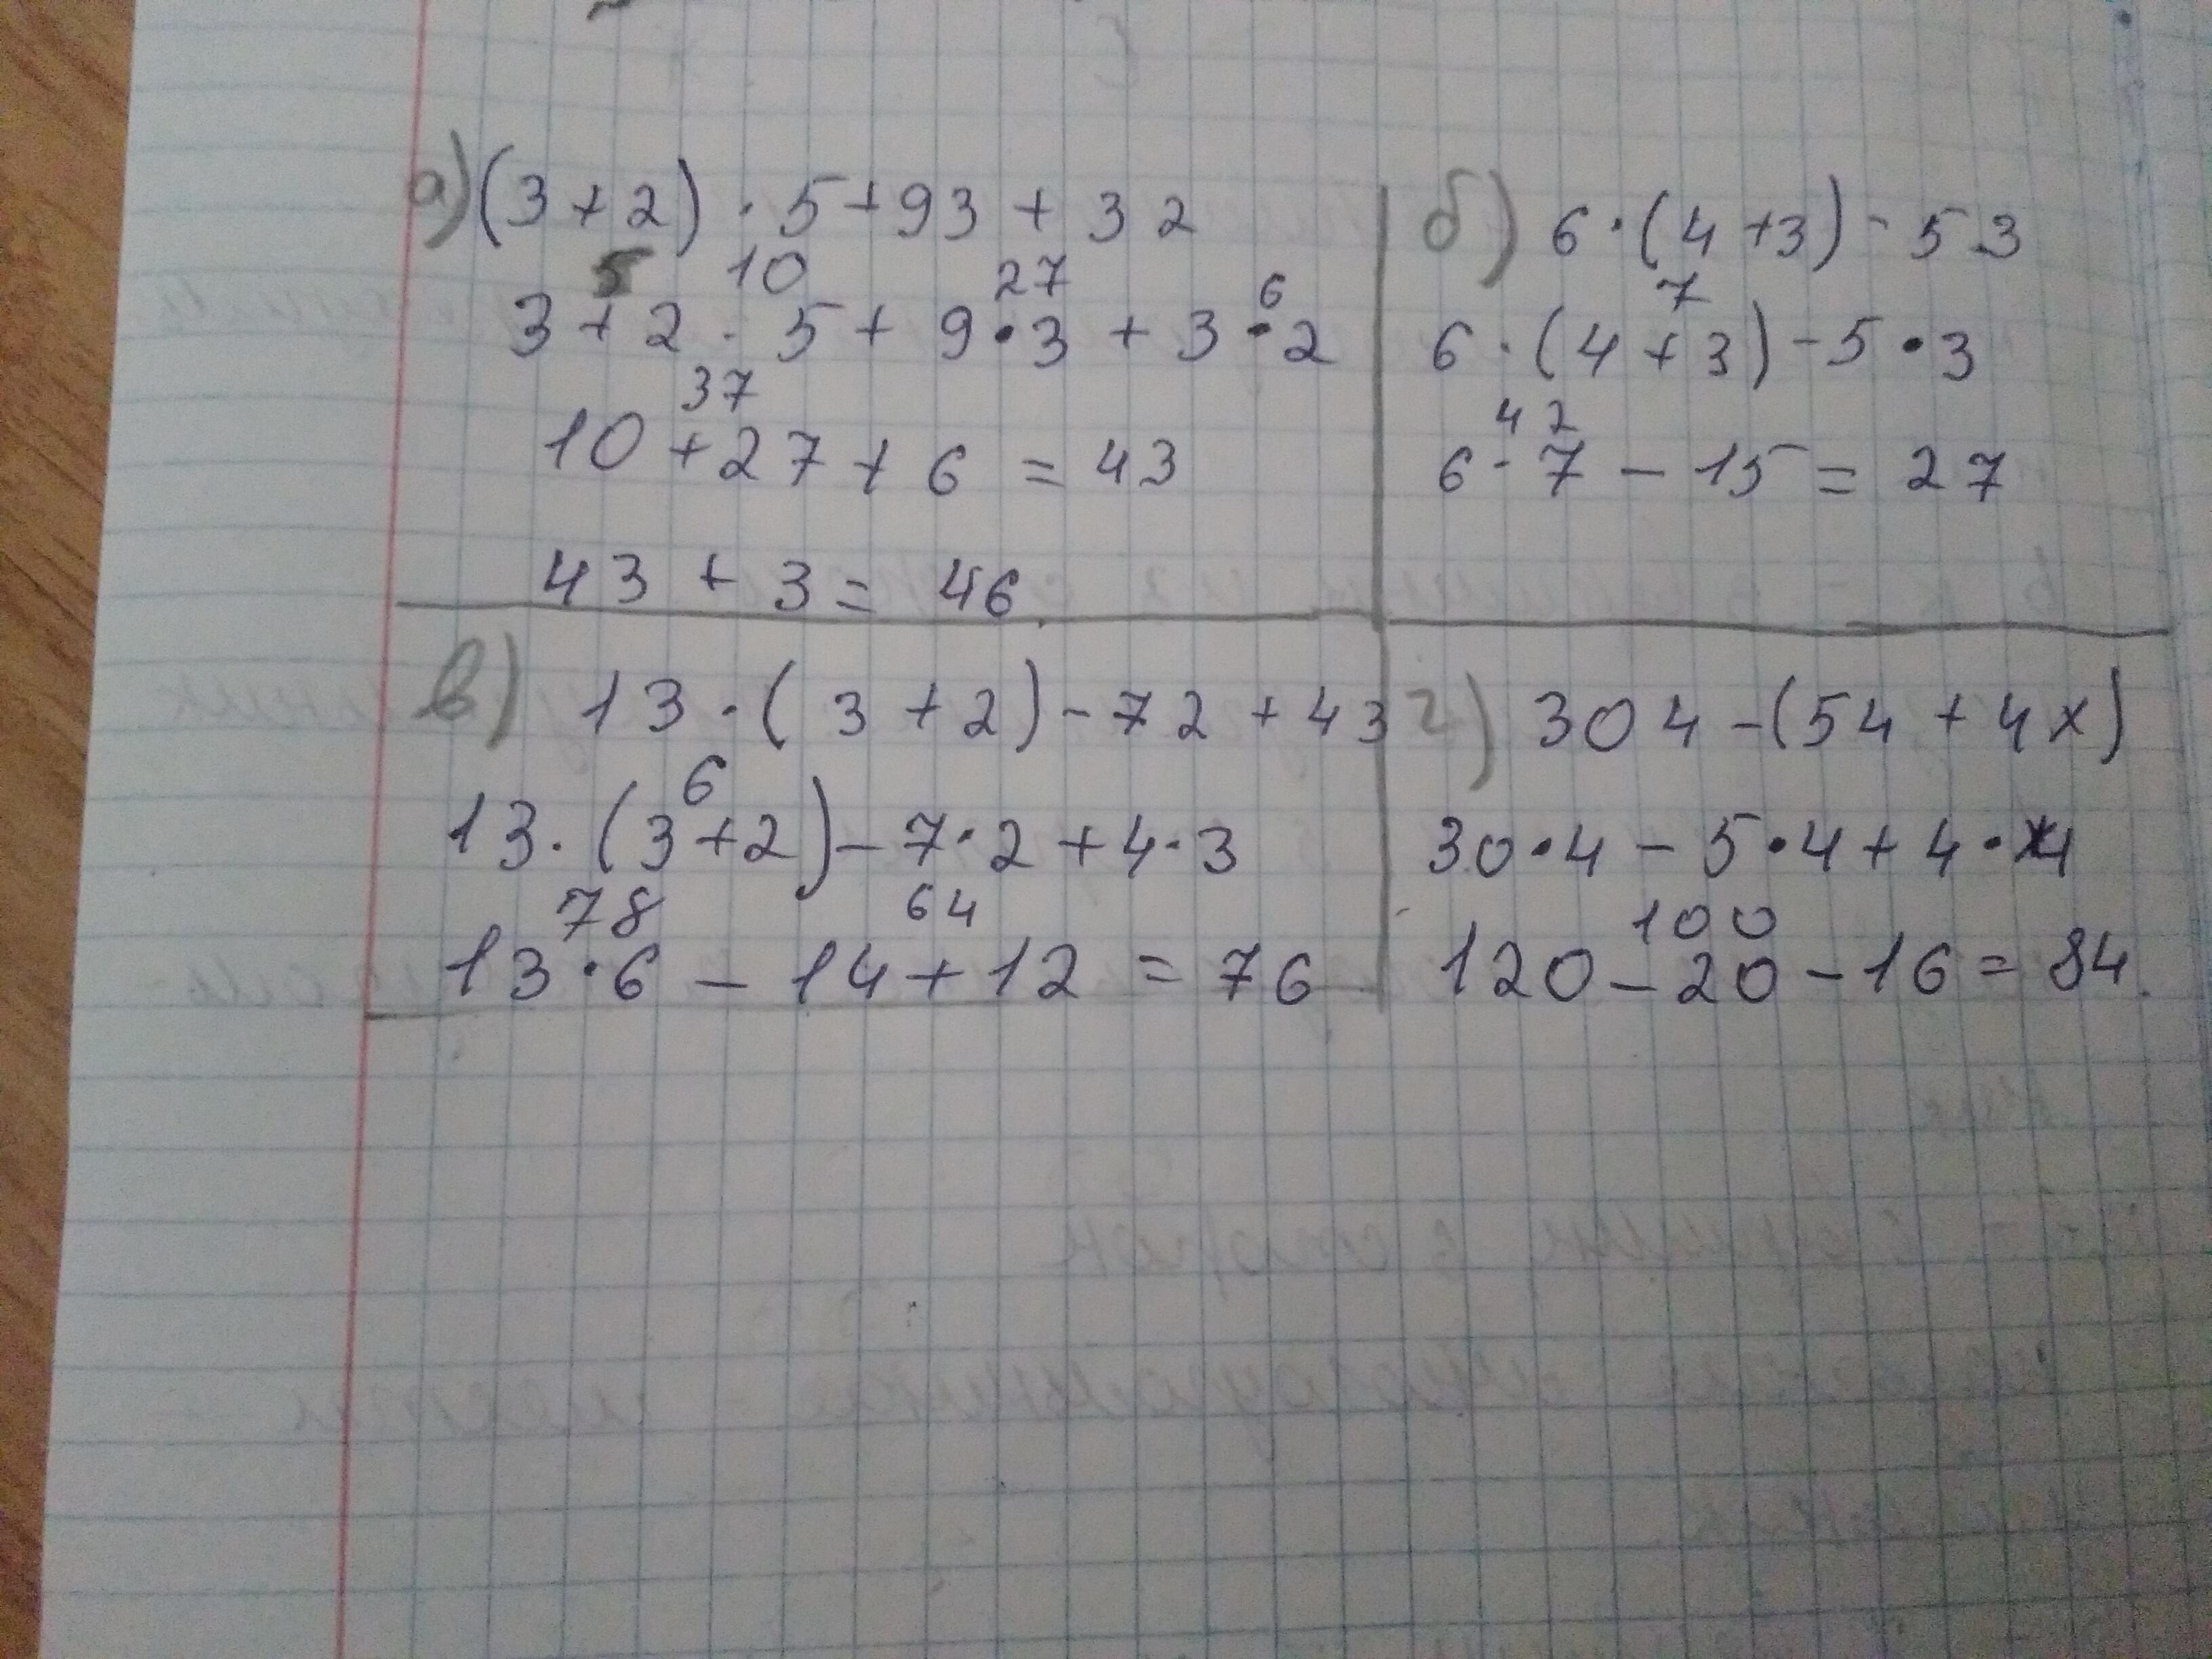 а) (3+2)·5+93+32
5 10 27 6
3+2·5+9·3+3·2
37
10+27+6=43
43+3=46
б) 6·(4+3)-53
7
6·(4+3)-5·3
42
6·7-15=27
в) 13·(3+2)-72+43
6
13·(3+2)-7·2+4·3
78 64
13·6-14+12=76
г) 304-(54+4х)
30·4-5·4+4·4
100
120-20-16=84.